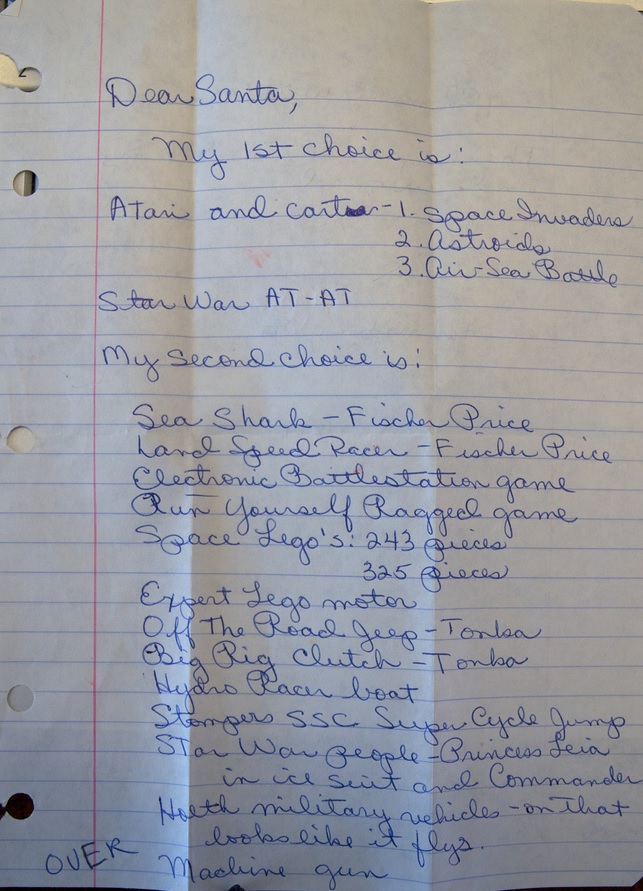 Dear Santa,
My 1st choice is:
Atari and cart - 1. Space Invaders
2. Astroids
3. Air-Sea Battle
Star War AT-AT
My second choice is:
Sea Shark - Fischer Price
Land Speed Racer - Fischer Price
Electronic Battlestation game
Run Yourself Ragged game
Space Lego's: 243 pieces
325 pieces
Expert Lego motor
Off The Road Jeep - Tonka
Big Rig Clutch - Tonka
Hydro Racer boat
Stompers SSC Super Cycle Jump
Star War people - Princess Leia
in ice suit and Commander
Hoth military vehicles - on that
looks like it flys.
OVER Machine gun